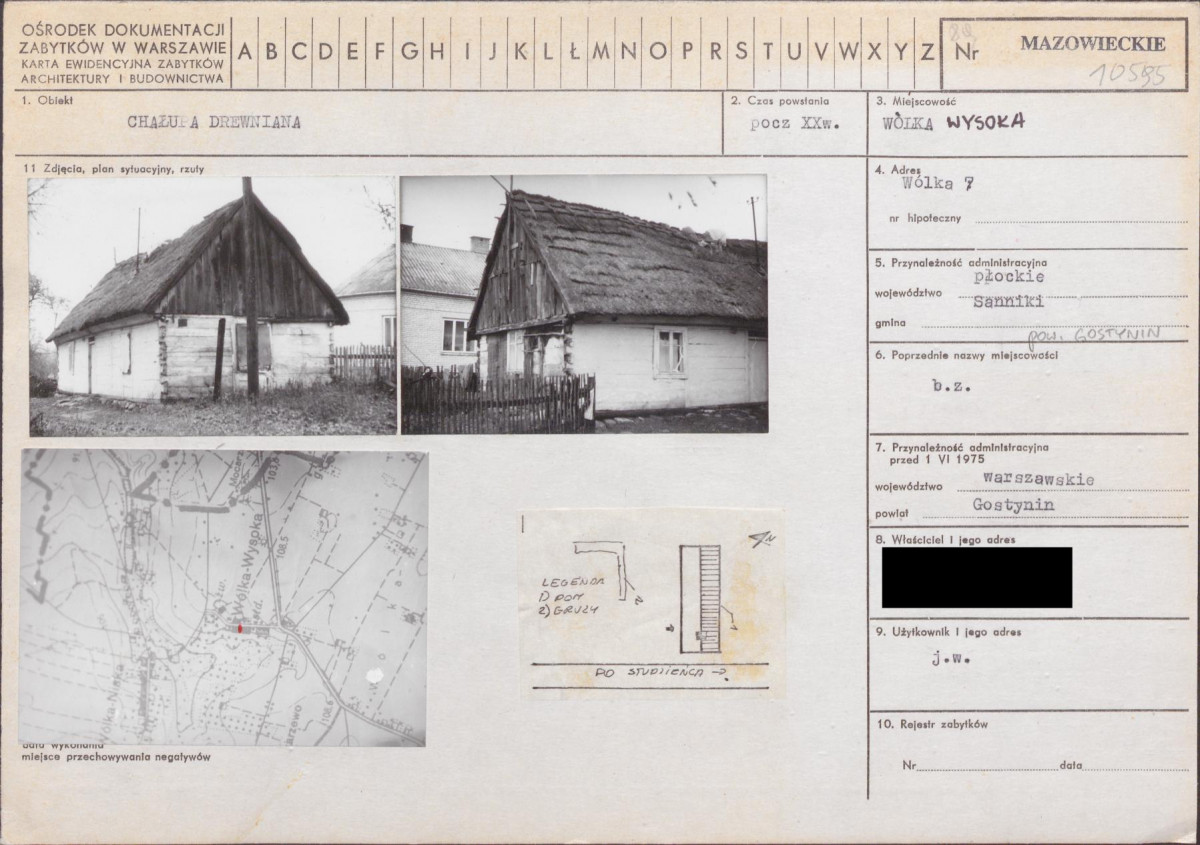 OŚRODEK DOKUMENTACJI
ZABYTKÓW W WARSZAWIE
KARTA EWIDENCYJNA ZABYTKÓW
ARCHITEKTURY I BUDOWNICTWA
A B C D E F G H I J K L Ł M N O P R S T U V W X Y Z
Nr
MAZOWIECKIE
10595
1. Obiekt
CHAŁUPA DREWNIANA
2. Czas powstania
pocz XXw.
3. Miejscowość
WÓLKA WYSOKA
11 Zdjęcia, plan sytuacyjny, rzuty
4. Adres
Wólka 7
nr hipoteczny
5. Przynależność administracyjna
płockie
województwo
Sanniki
gmina
pow. GOSTYNIN
6. Poprzednie nazwy miejscowości
b.z.
7. Przynależność administracyjna
przed 1 VI 1975
warszawskie
województwo
Gostynin
powiat
8. Właściciel i jego adres
9. Użytkownik i jego adres
j.w.
10. Rejestr zabytków
Nr
data
Wólka-Wysoka
108,5
108,6
LEGENDA
1) DOM
2) GRUZY
N
2
1
DO STUDZIEŃCA →
data wykonania
miejsce przechowywania negatywów